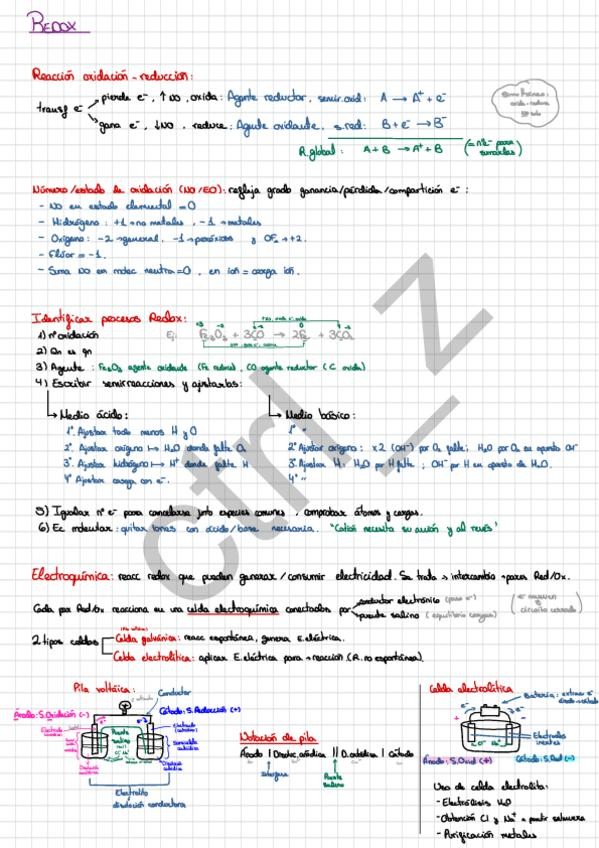 REDOX
Reacción oxidación-reducción:
transf e⁻
pierde e⁻, ↑NO, oxida: Agente reductor, semir.oxid: A → A⁺ + e⁻
gana e⁻, ↓NO, reduce: Agente oxidante, s.red: B + e⁻ → B⁻
R.global: A + B → A⁺ + B (= nºe⁻ para sumarlas)
Número/estado de oxidación (NO/EO): refleja grado ganancia/pérdida/compartición e⁻:
- NO en estado elemental = 0
- Hidrógeno: +1 → no metales, -1 → metales
- Oxígeno: -2 → general, -1 → peróxidos y OF₂ → +2.
- Flúor = -1.
- Suma NO en molec neutra = 0, en ion = carga ion.
Identificar procesos Redox:
1) nº oxidación Ej: Fe₂O₃ + 3CO → 2Fe + 3CO₂
2) Qn es qn
3) Agente: Fe₂O₃ agente oxidante (Fe reduce), CO agente reductor (C oxida)
4) Escribir semirreacciones y ajustarlas:
Medio ácido: Medio básico:
1º. Ajustar todo menos H y O 1º "
2º. Ajustar oxígeno → H₂O donde falte O. 2º Ajustar oxígeno: x2 (OH⁻) por O₂ falte; H₂O por O₂ en opuesto OH⁻
3º. Ajustar hidrógeno → H⁺ donde falte H 3º Ajustar H: H₂O por H falte; OH⁻ por H en opuesto de H₂O.
4º Ajustar carga con e⁻. 4º "
5) Igualar nº e⁻ para cancelarse junto especies comunes, comprobar átomos y cargas.
6) Ec molecular: quitar iones con ácido/base necesaria. "Catión necesita su anión y al revés"
Electroquímica: reacc redox que pueden generar/consumir electricidad. Se trata → intercambio → pares Red/Ox.
Cada par Red/Ox reacciona en una celda electroquímica conectados por
conductor electrónico (paso e⁻)
puente salino (equilibrio cargas)
(e⁻ mueven circuito cerrado)
2 tipos celdas
Celda galvánica: reacc espontánea, genera E.eléctrica.
Celda electrolítica: aplicar E.eléctrica para → reacción (R.no espontánea).
Pila voltáica: Conductor
Ánodo: S.Oxidación (-) Cátodo: S.Reducción (+)
Puente salino
Electrolito
disolución conductora
Notación de pila
Ánodo | D.anódica || D.catódica | Cátodo
Puente salino
Celda electrolítica
Batería: extrae e⁻ ánodo → cátodo
Electrodos inertes
Ánodo: S.Oxid (+) Cátodo: S.Red (-)
Usos de celda electrolita:
- Electrólisis H₂O
- Obtención Cl y Na⁺ a partir salmuera
- Purificación metales
ctrl_z